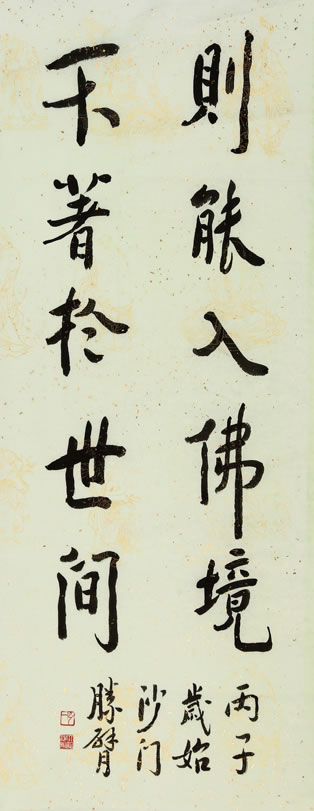 則能入佛境
不著於世間
丙子
歲始
沙门
勝臂